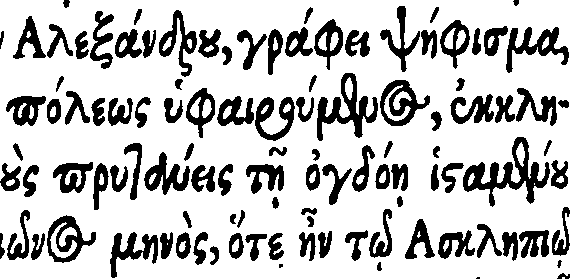 Αλεξάνδρου, γράφει ψήφισμα,
πόλεως ὑφαιρούμενος, ἐκκλη-
ὺς πρυτάνεις τῇ ὀγδόῃ ἱσταμένου
ιῶνος μηνὸς, ὅτε ἦν τῷ Ασκληπιῷ